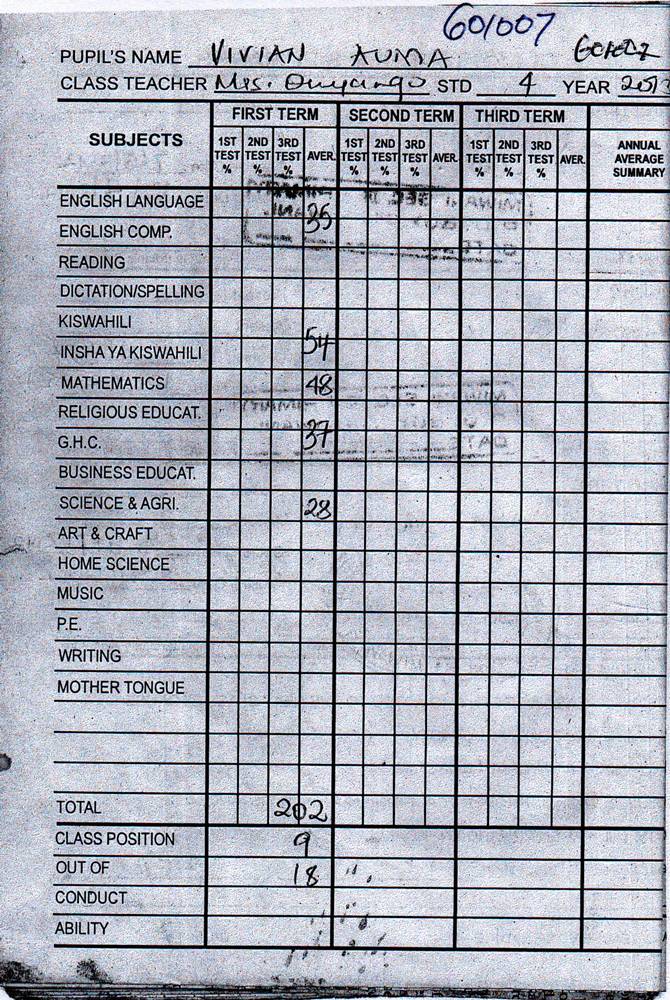 601007
PUPIL'S NAME VIVIAN AUMA
CLASS TEACHER Mrs. Onyango STD 4 YEAR
SUBJECTS FIRST TERM SECOND TERM THIRD TERM ANNUAL AVERAGE SUMMARY
1ST TEST % 2ND TEST % 3RD TEST % AVER. 1ST TEST % 2ND TEST % 3RD TEST % AVER. 1ST TEST % 2ND TEST % 3RD TEST % AVER.
ENGLISH LANGUAGE
ENGLISH COMP. 35
READING
DICTATION/SPELLING
KISWAHILI
INSHA YA KISWAHILI 54
MATHEMATICS 48
RELIGIOUS EDUCAT.
G.H.C. 37
BUSINESS EDUCAT.
SCIENCE & AGRI. 28
ART & CRAFT
HOME SCIENCE
MUSIC
P.E.
WRITING
MOTHER TONGUE
TOTAL 202
CLASS POSITION 9
OUT OF 18
CONDUCT
ABILITY